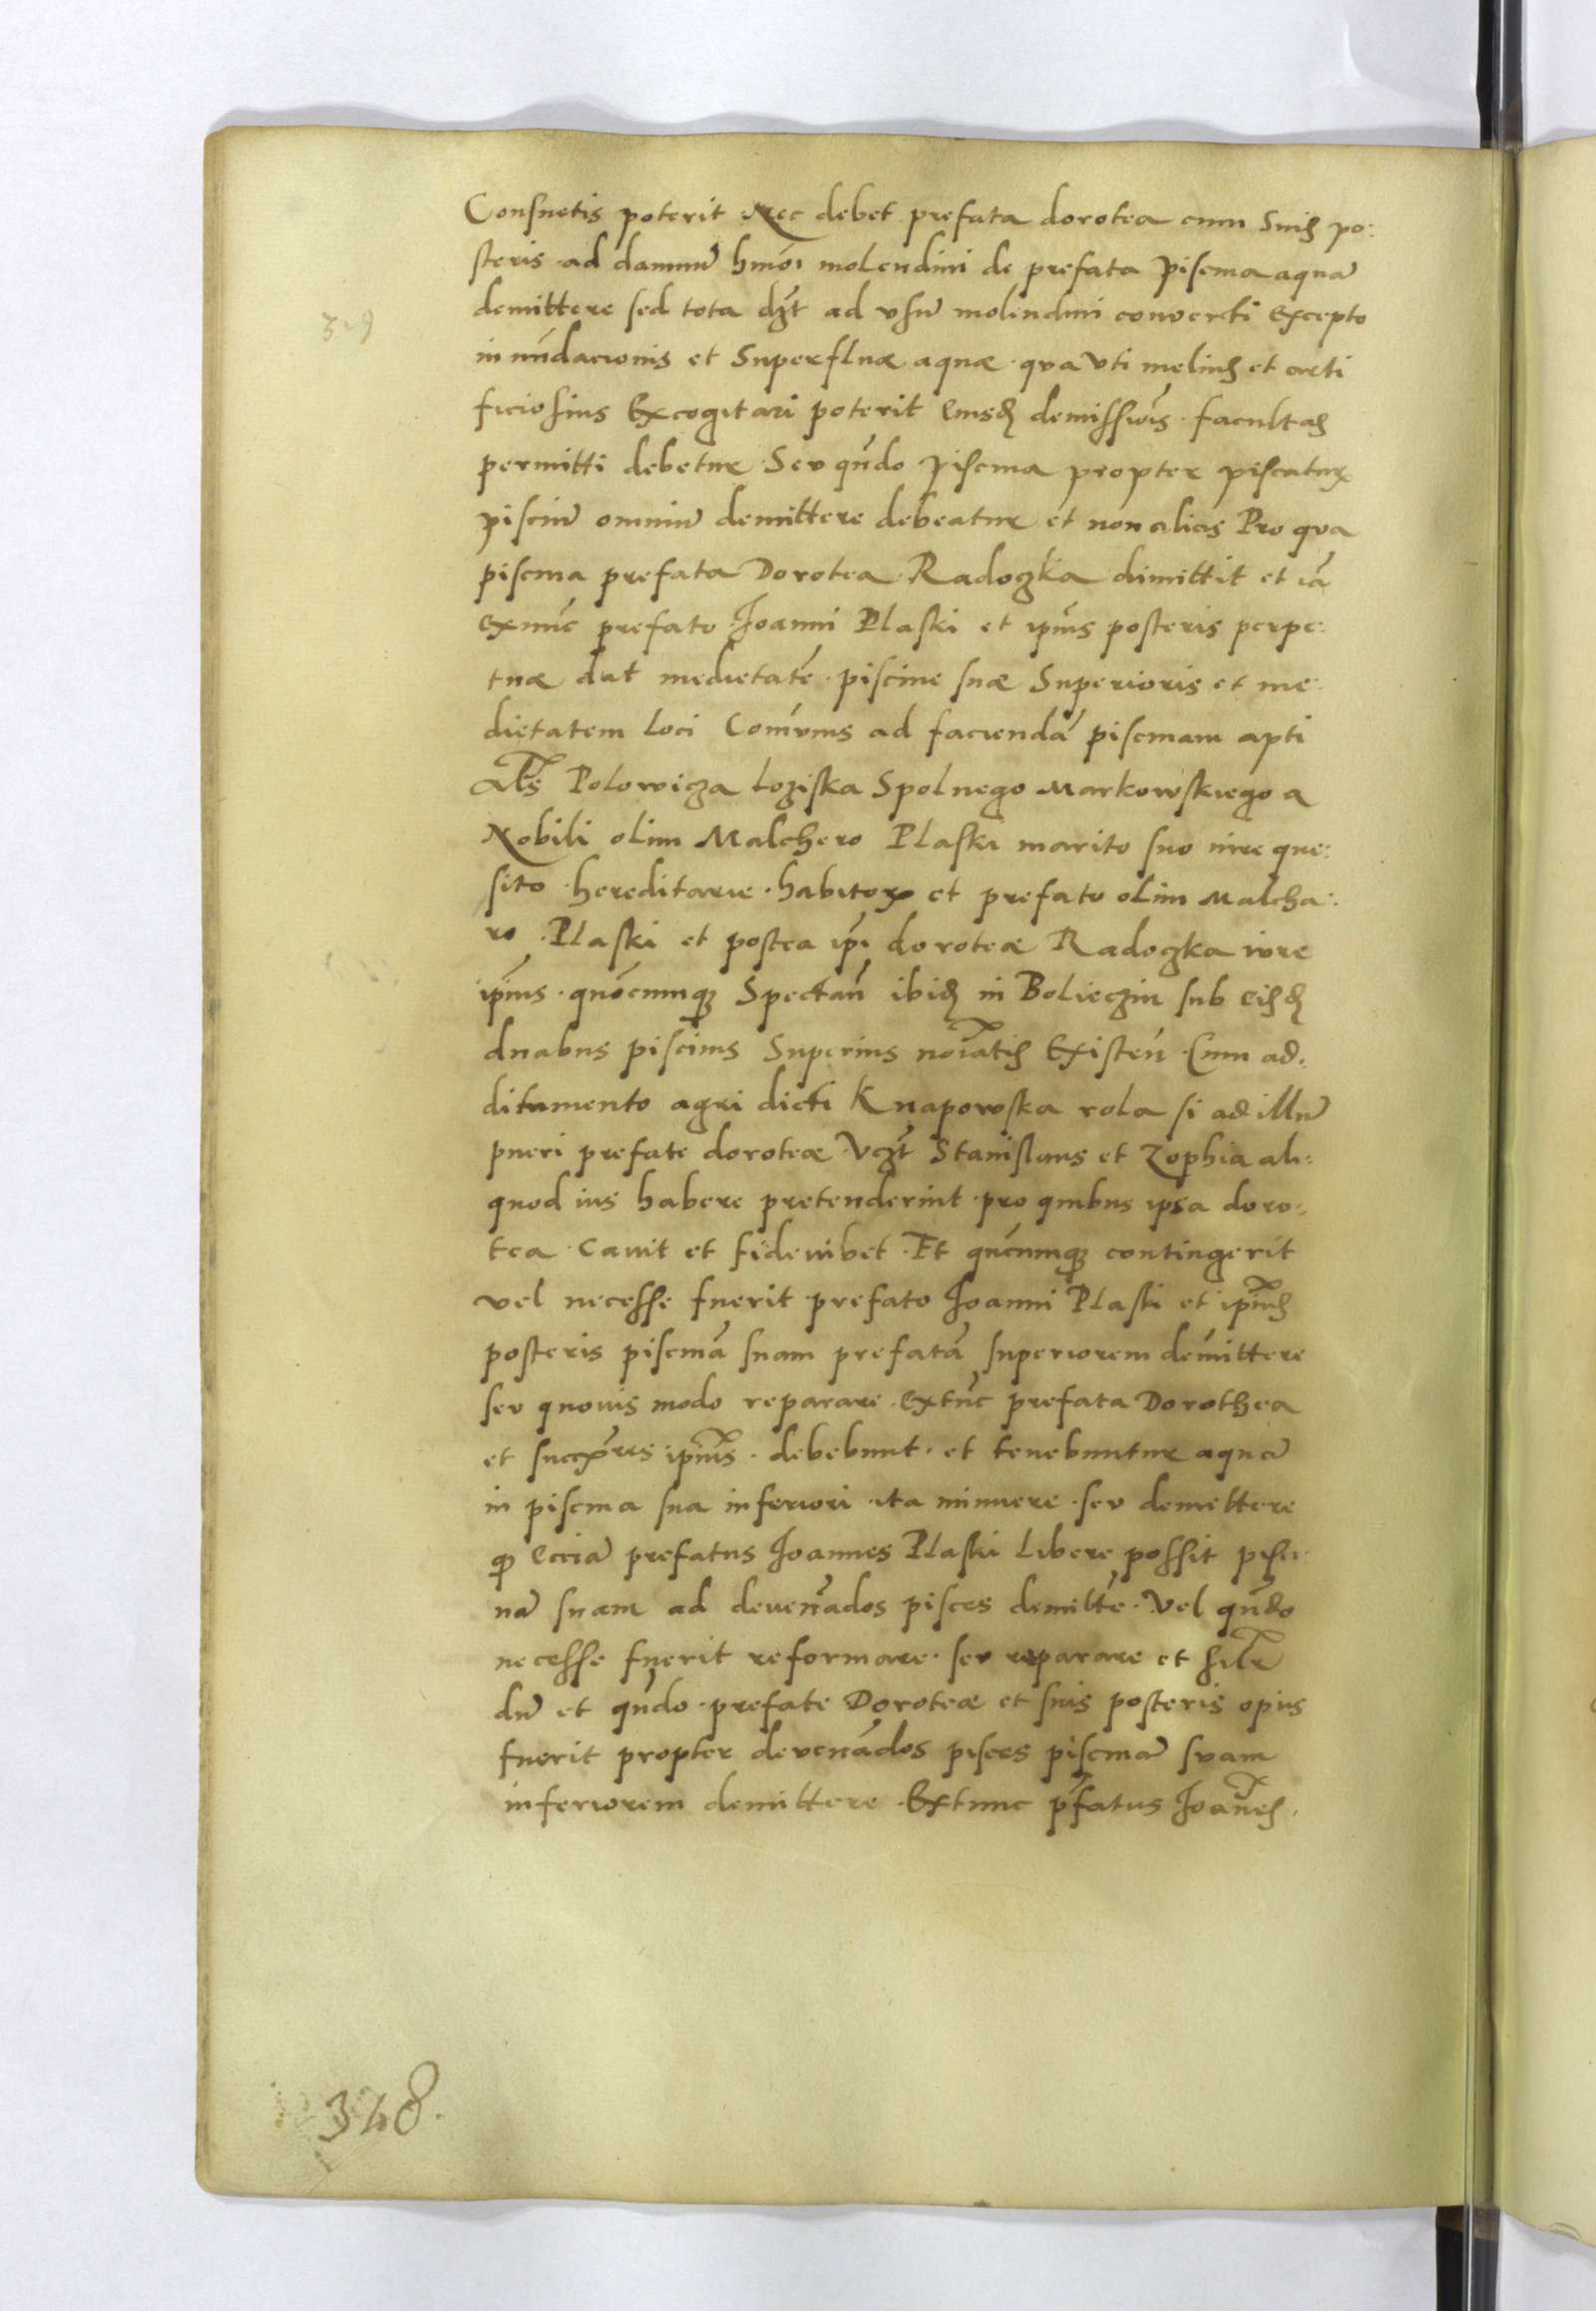 Consuetis poterit Nec debet prefata dorotea cum Suis po:
steris ad damnū hmōi molendini de prefata piscina aquā
demittere sed tota dz̄t ad vsū molendini conuerti Excepto
319
innūdacionis et Superfluæ aquæ qua vti melius et arti
ficiosius Excogitari poterit Eiusd demissiōis facultas
permitti debetur Seu qn̄do piscina propter piscatur
pisciū omniū demittere debeatur et non alias Pro qua
piscina prefata Dorotea Radoczka dimittit et iā
exnūc prefato Joanni Plaski et ipīus posteris perpe:
tuæ dat medietatē piscine suæ Superioris et me:
dietatem loci Com̄unis ad faciendā piscinam apti
Al̄s Polowicza loziska Spolnego Markowskiego a
Nobili olim Malchero Plaski marito suo iure que:
sito hereditarie habitor et prefato olim Malcha:
ro Plaski et postea ip̄i doroteæ Radoczka iure
ipīus quōcumq Spectan̄ ibid in Bolieczin sub eisd
duabus piscinis Superius noīatis Existen̄ Cum ad:
ditamento agri dicti Knapowska rola si ad illū
pueri prefate doroteæ Vcz̄t Stanislaus et Zophia ali:
quod ius habere pretenderint pro quibus ipsa doro:
tea cauit et fideiubet Et quēcumq contingerit
vel necesse fuerit prefato Joanni Plaski et ipīus
posteris piscinā suam prefatā superiorem demittere
seu quouis modo reparare extūc prefata Dorothea
et succōres ipīus debebunt et tenebuntur aquā
in piscina sua inferiori ita minuere seu demittere
q Eciā prefatus Joannes Plaski libere possit pisci:
nā suam ad deuenādos pisces demitte͂ Vel qn̄do
necesse fuerit reformare seu reparare et silr
dū et qn̄do prefate Doroteæ et suis posteris opus
fuerit propter deuenādos pisces piscinā suam
inferiorem demittere Extunc p̄fatus Joan̄es
348.